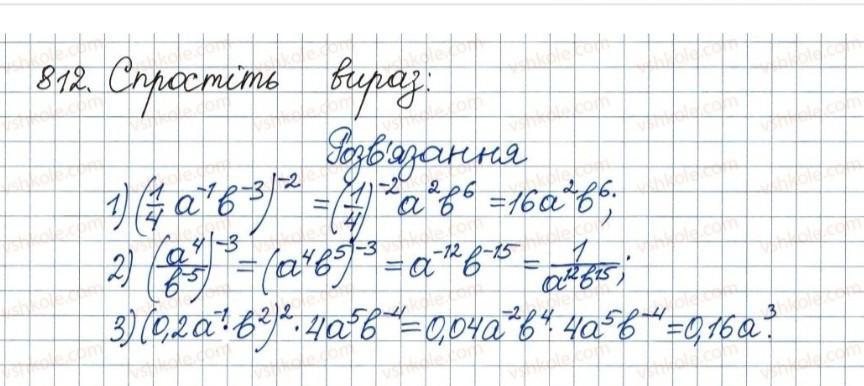 812. Спростіть вираз:
Розв'язання
1) (1/4 a⁻¹b⁻³)⁻² = (1/4)⁻²a²b⁶ = 16a²b⁶;
2) (a⁴/b⁻⁵)⁻³ = (a⁴b⁵)⁻³ = a⁻¹²b⁻¹⁵ = 1/a¹²b¹⁵;
3) (0,2a⁻¹·b²)²·4a⁵b⁻⁴ = 0,04a⁻²b⁴·4a⁵b⁻⁴ = 0,16a³.